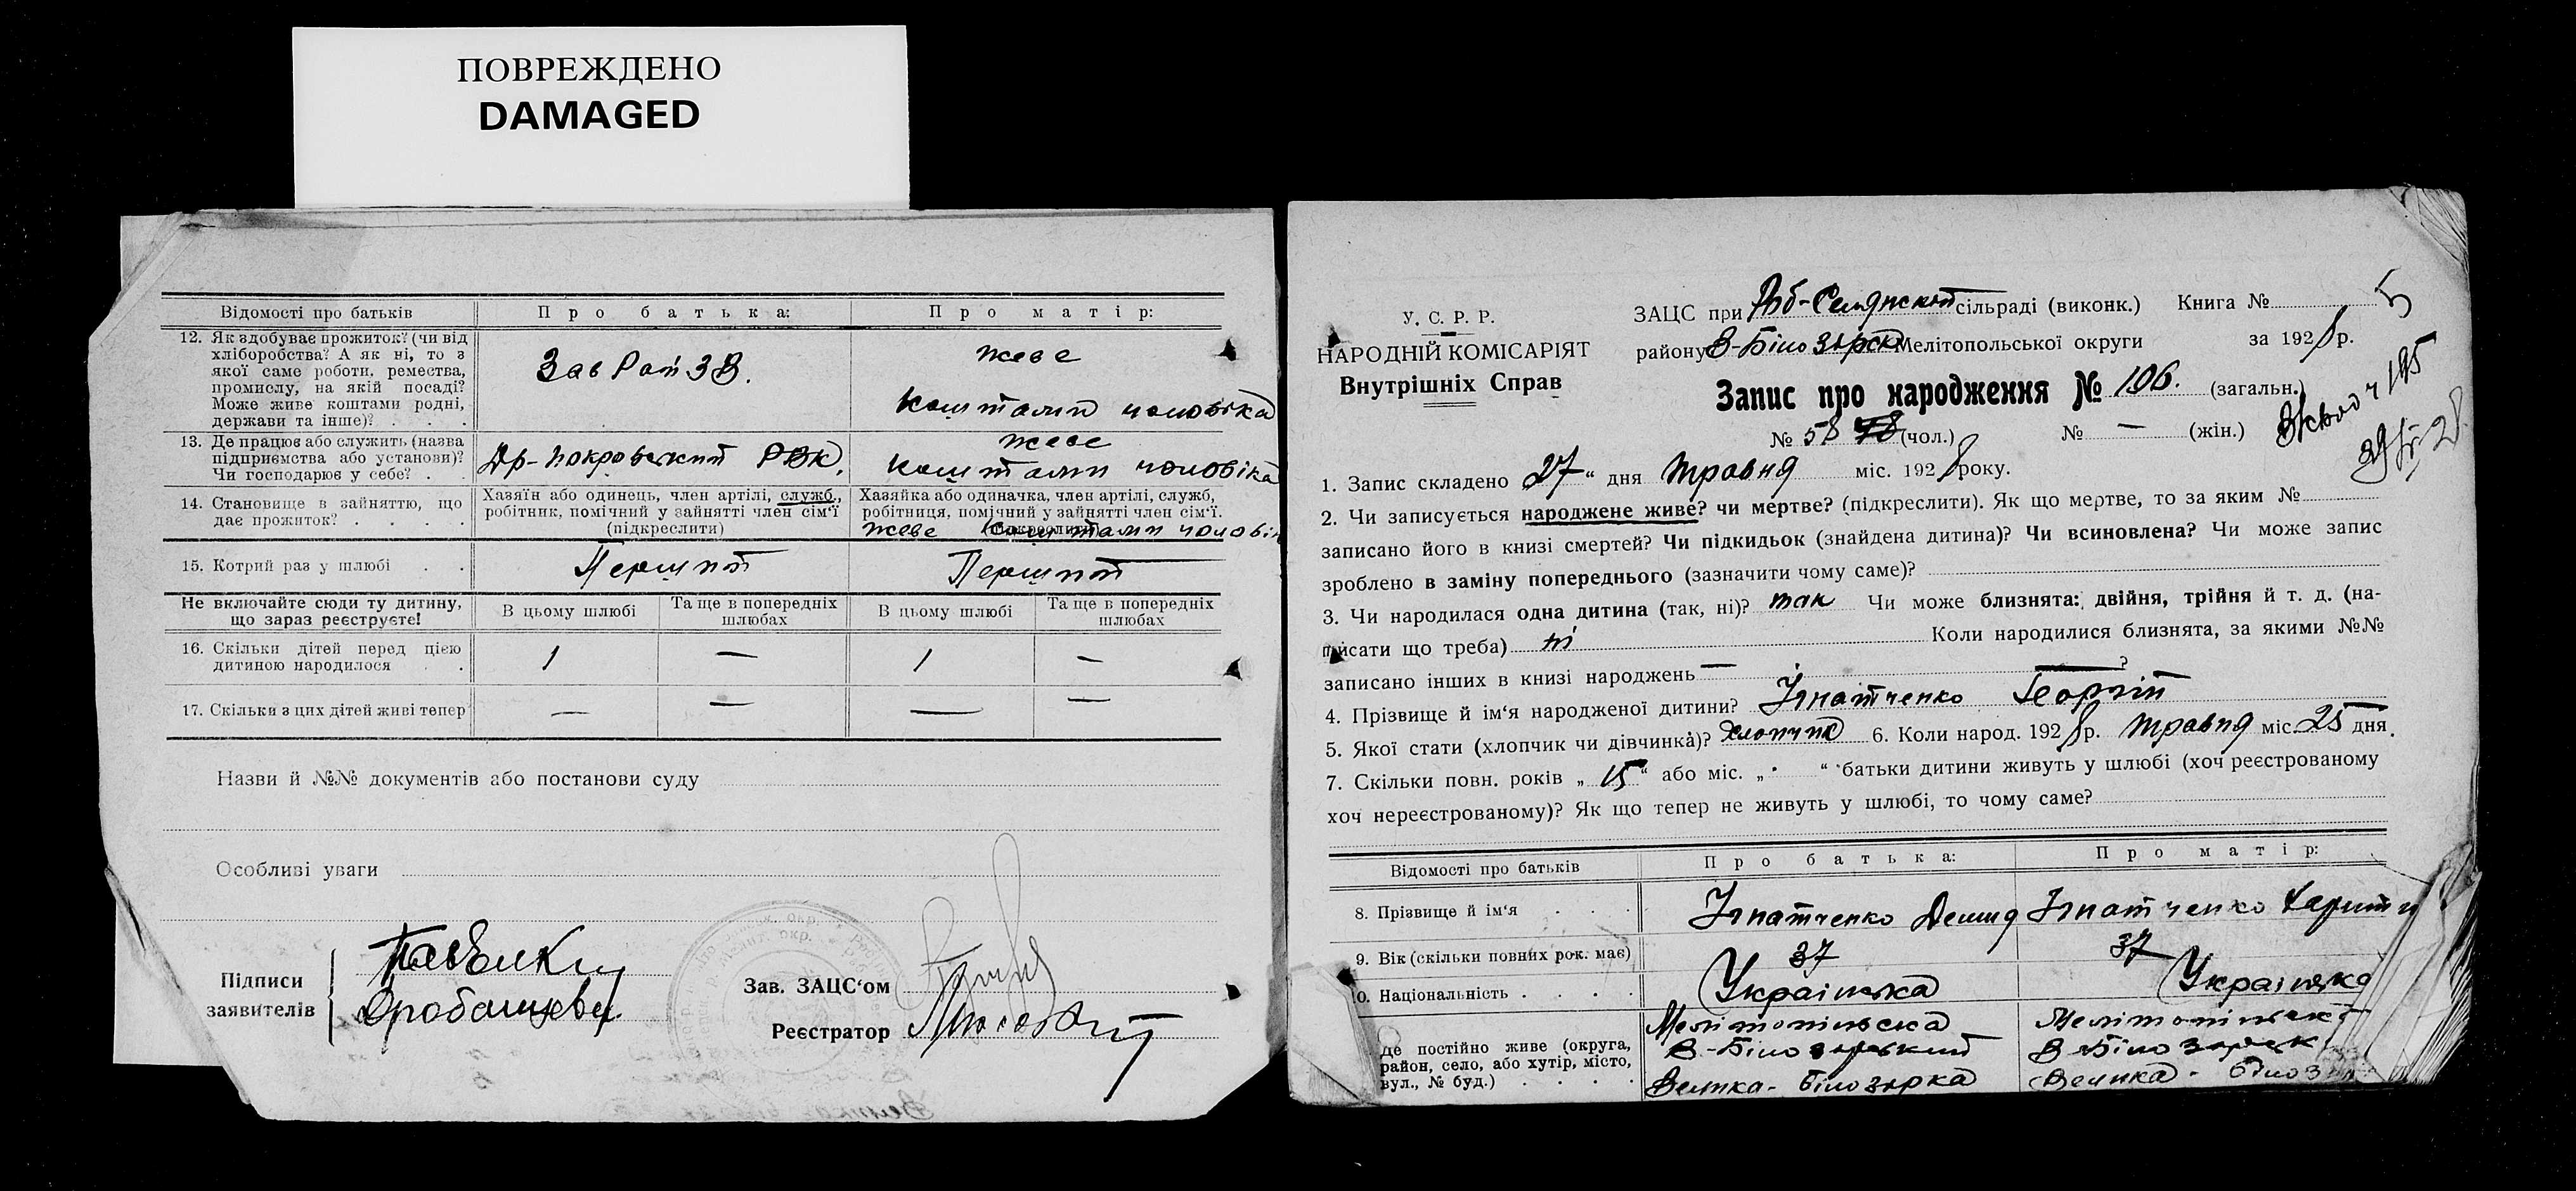 ПОВРЕЖДЕНО
DAMAGED
Відомості про батьків
Про батька:
Про матір:
12. Як здобуває прожиток? (чи від
хліборобства? А як ні, то з
якої саме роботи, ремества,
промислу, на якій посаді?
Може живе коштами родні,
держави та інше)? . . .
Зав
живе
коштами чоловіка
13. Де працює або служить (назва
підприємства або установи)?
Чи господарює у себе? . .
Др-покровський РВК.
живе
коштами чоловіка
14. Становище в зайняттю, що
дає прожиток? . . . .
Хазяїн або одинець, член артілі, служб.,
робітник, помічний у зайнятті член сім'ї
(підкреслити)
Хазяйка або одиначка, член артілі, служб,
робітниця, помічний у зайнятті член сім'ї.
(підкреслити)
живе коштами
15. Котрий раз у шлюбі . .
Перший
Перший
Не включайте сюди ту дитину,
що зараз реєструєте!
В цьому шлюбі
Та ще в попередніх
шлюбах
В цьому шлюбі
Та ще в попередніх
шлюбах
16. Скільки дітей перед цією
дитиною народилося . .
1 — 1 —
17. Скільки з цих дітей живі тепер
— — — —
Назви й №№ документів або постанови суду
Особливі уваги
Підписи
заявителів
Зав. ЗАЦС'ом
Реєстратор
У. С. Р. Р.
НАРОДНІЙ КОМІСАРІЯТ
Внутрішніх Справ
ЗАЦС при сільраді (виконк.) Книга № 5
району В-Білозірск Мелітопольської округи за 1928 р.
Запис про народження № 106. (загальн.)
№ 58 78 (чол.) № — (жін.)
1. Запис складено „27“ дня травня міс. 1928 року.
2. Чи записується народжене живе? чи мертве? (підкреслити). Як що мертве, то за яким №
записано його в книзі смертей? Чи підкидьок (знайдена дитина)? Чи всиновлена? Чи може запис
зроблено в заміну попереднього (зазначити чому саме)?
3. Чи народилася одна дитина (так, ні)? так Чи може близнята: двійня, трійня й т. д. (на-
писати що треба) ні Коли народилися близнята, за якими №№
записано інших в книзі народжень — ?
4. Прізвище й ім'я народженої дитини? Ігнатченко Георгій
5. Якої стати (хлопчик чи дівчинка)? хлопчик 6. Коли народ. 1928 р. травня міс. 25 дня.
7. Скільки повн. років „15“ або міс. „ “ батьки дитини живуть у шлюбі (хоч реєстрованому
хоч нереєстрованому)? Як що тепер не живуть у шлюбі, то чому саме?
Відомості про батьків
Про батька:
Про матір:
8. Прізвище й ім'я . . .
Ігнатченко Демид
Ігнатченко
9. Вік (скільки повних рок. має)
37
37
10. Національність . . . .
Українка
Українка
Де постійно живе (округа,
район, село, або хутір, місто,
вул., № буд.) . . . .
Мелітопільска
В-Білозірський
Велика-Білозірка
Мелітопільск
В Білозірск
Велика-